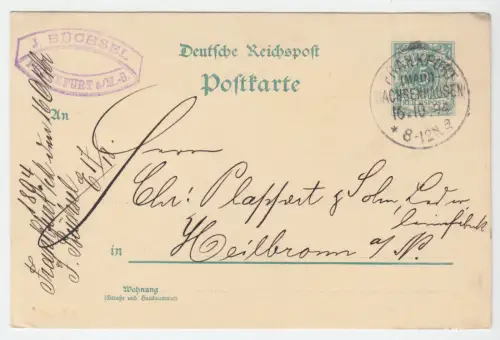 J. BÜCHSEL
FRANKFURT a/M.-S.
Deutsche Reichspost
Postkarte
FRANKFURT
(MAIN)
SACHSENHAUSEN
16.10.94
* 8-12N. a
An
Herrn
Chr: Plappert & Sohn, Led u
leimfabrik
in Heilbronn a/N.
Wohnung
(Straße und Hausnummer)
Frankfurt d. den 16 Okt
1894
J. Büchsel